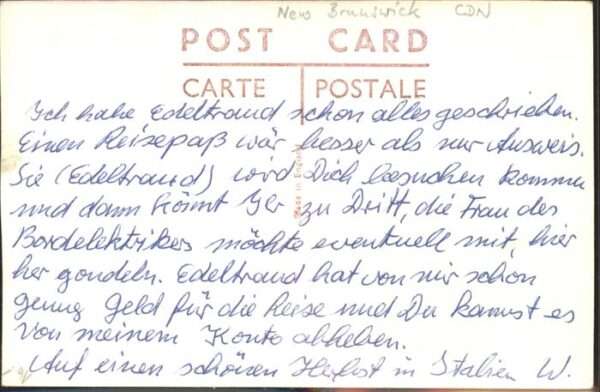 New Brunswick CDN
POST CARD
CARTE POSTALE
Ich habe Edeltraud schon alles geschrieben.
Einen Reisepaß wär besser als nur Ausweis.
Sie (Edeltraud) wird Dich besuchen kommen
und dann könnt Ihr zu Dritt, die Frau des
Bordelektrikers möchte eventuell mit, hier
her gondeln. Edeltraud hat von mir schon
genug Geld für die Reise und Du kannst es
von meinem Konto abheben.
Auf einen schönen Herbst in Italien W.
Made in England